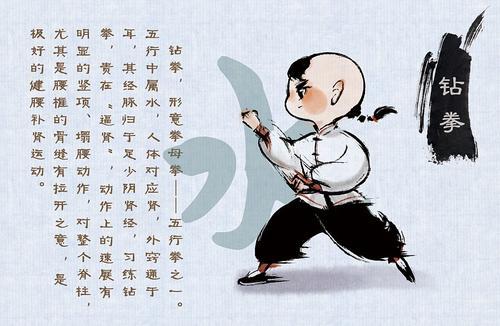 钻拳
钻拳，形意拳母拳——五行拳之一。
五行中属水，人体对应肾，外窍通于
耳，其经脉归于足少阴肾经，习练钻
拳，贵在“逼肾”，动作上的速展有
明显的竖项、塌腰动作，对整个脊柱，
尤其是腰椎的骨缝有拉开之意，是
极好的健腰补肾运动。
水